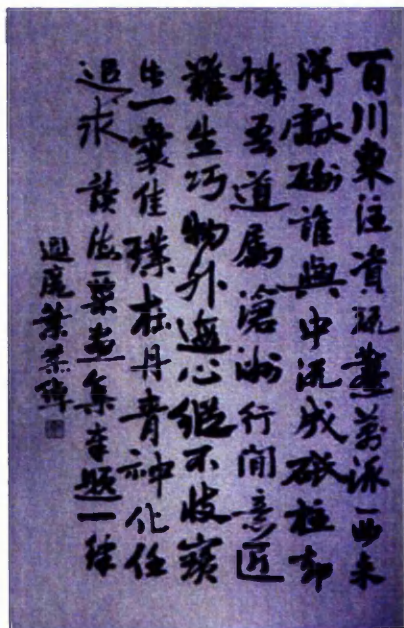 百川東注資疏萬派西来
得獻酬誰與中流成砥柱却
憐吾道屬滄洲行間意匠
難生巧物外遊心縱不收寶
出一囊佳璞在丹青神化任
追求 讀海粟畫集奉題一律
遐庵葉恭綽